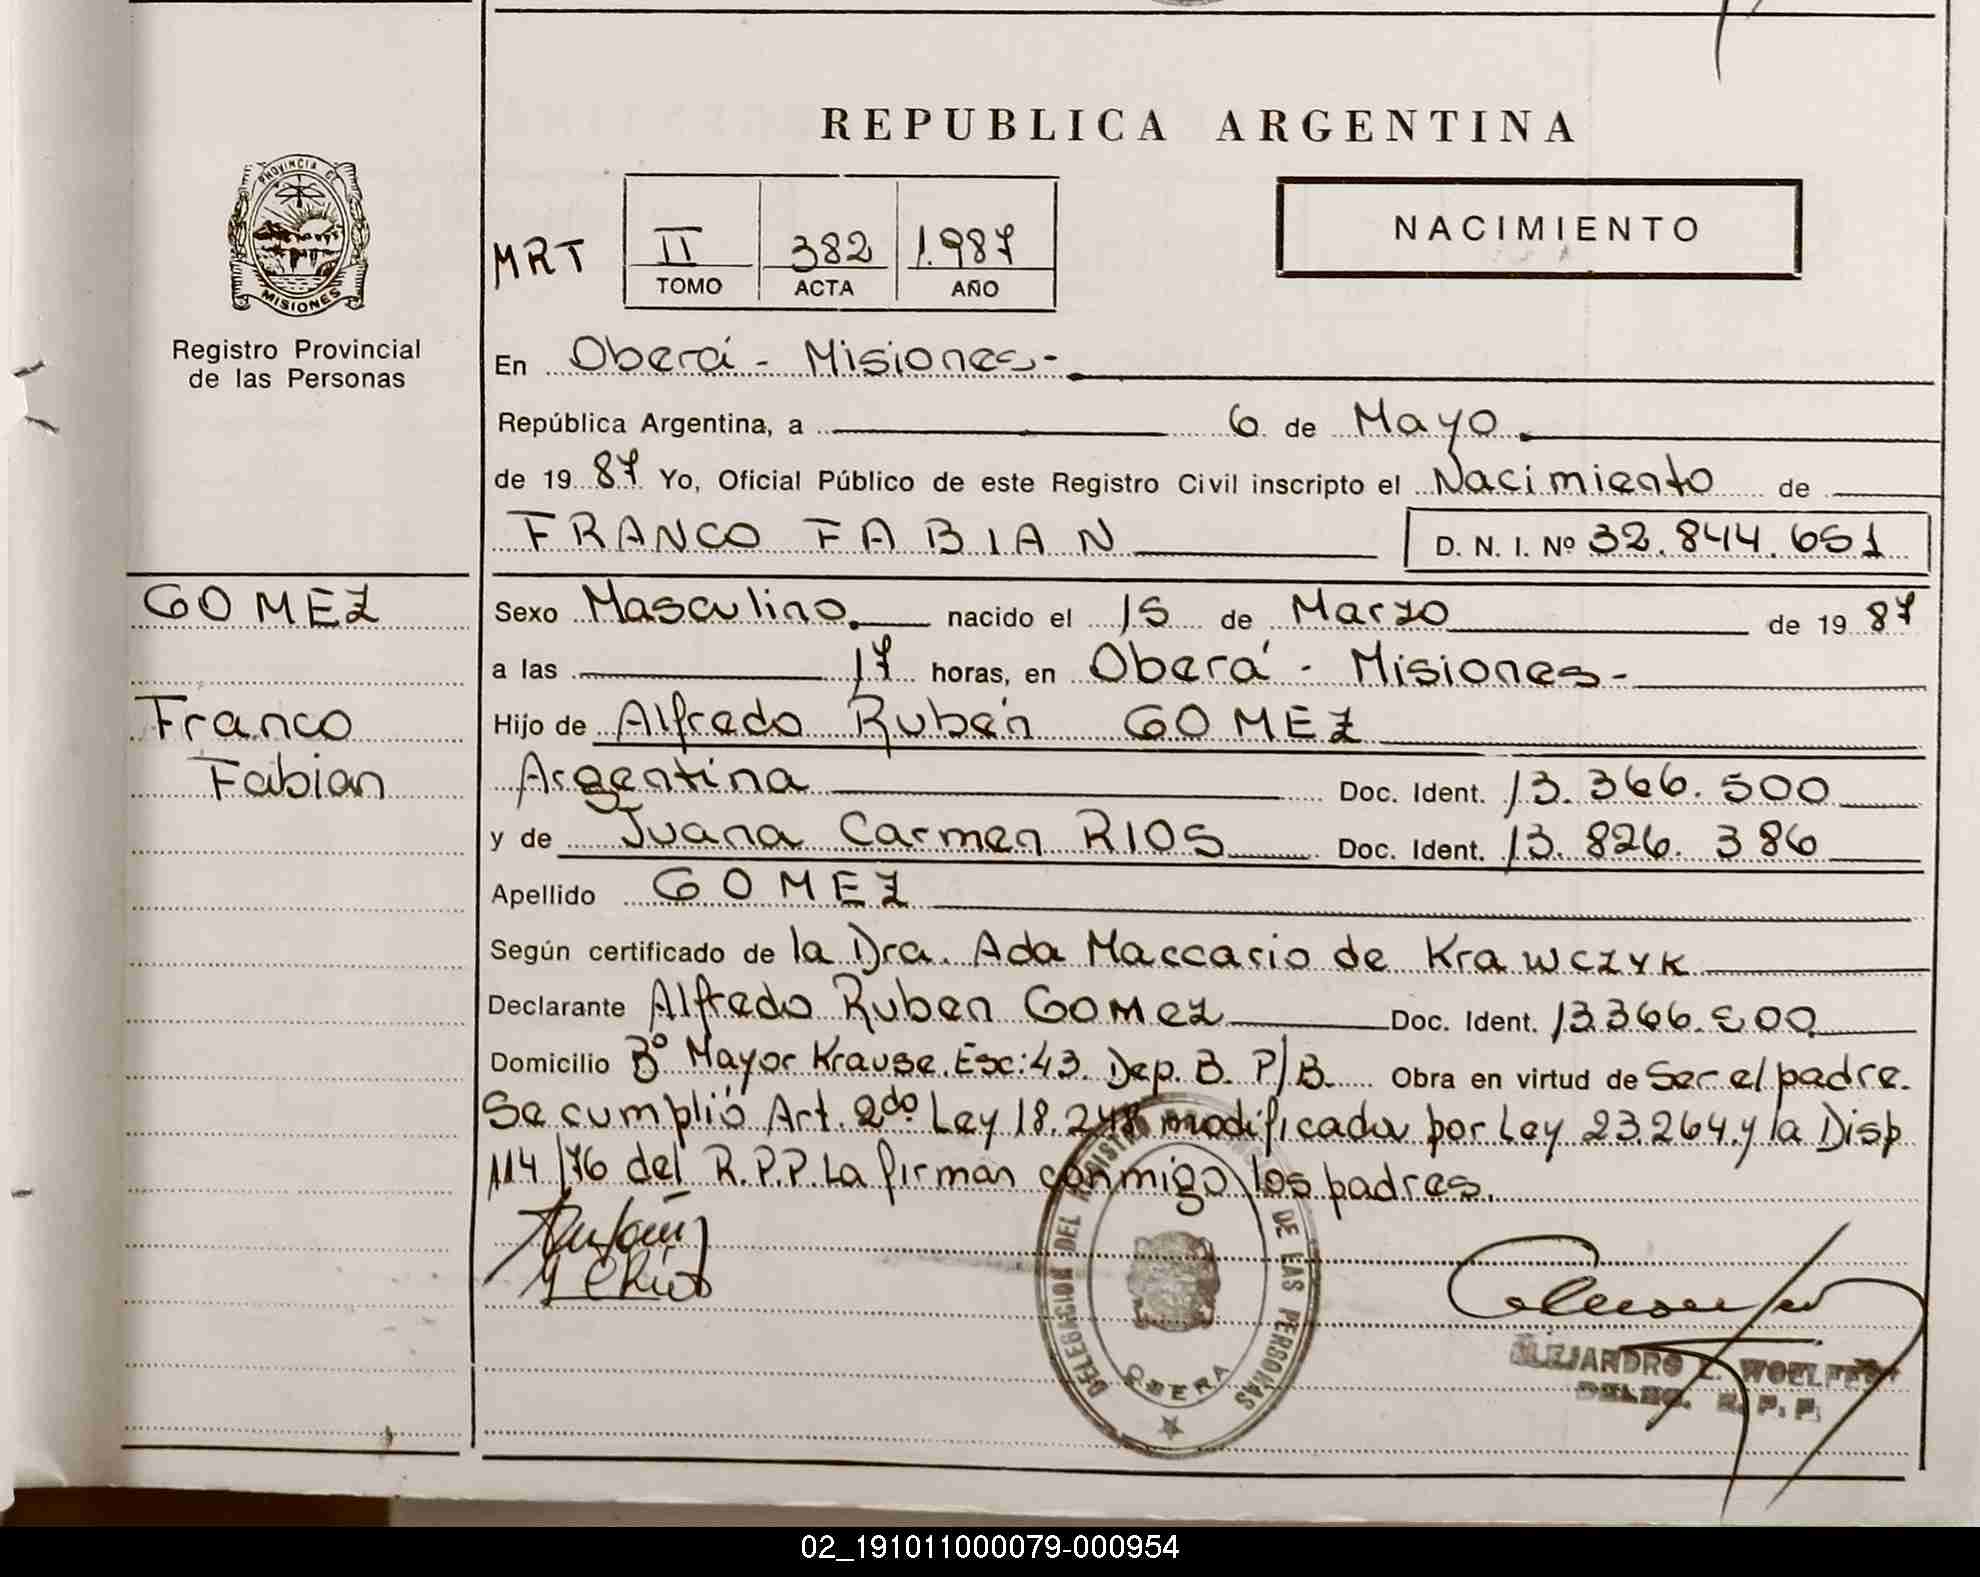 REPUBLICA ARGENTINA
PROVINCIA DE
MISIONES
Registro Provincial
de las Personas
NACIMIENTO
MRT II 382 1.987
TOMO ACTA AÑO
En Oberá - Misiones -
República Argentina, a 6 de Mayo
de 19 87 Yo, Oficial Público de este Registro Civil inscripto el Nacimiento de
FRANCO FABIAN D. N. I. Nº 32.844.651
GOMEZ
Franco
Fabian
Sexo Masculino. nacido el 15 de Marzo de 19 87
a las 17 horas, en Oberá - Misiones -
Hijo de Alfredo Rubén GOMEZ
Argentina Doc. Ident. 13.366.500
y de Juana Carmen RIOS Doc. Ident. 13.826.386
Apellido GOMEZ
Según certificado de la Dra. Ada Maccario de Krawczyk
Declarante Alfredo Ruben GOMEZ Doc. Ident. 13.366.500
Domicilio Bº Mayor Krause. Esc: 43. Dep. B. P/B. Obra en virtud de Ser el padre.
Se cumplió Art. 2do Ley 18.248 modificada por Ley 23.264 y la Disp
114/76 del R.P.P. La firman conmigo los padres.
DELEGACION DEL REGISTRO DE LAS PERSONAS
OBERA
ALEJANDRO
DELEG. R. P. P.
02_191011000079-000954